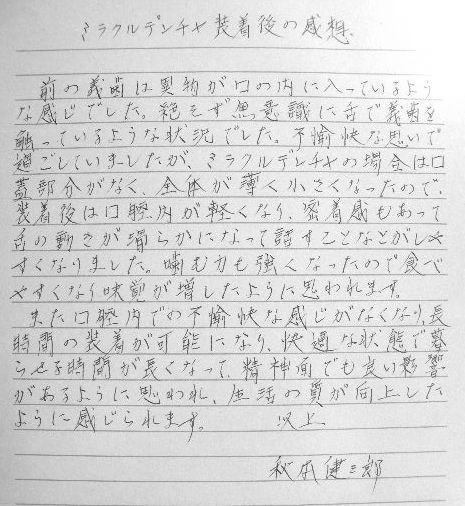 ミラクルデンチャ装着後の感想、
前の義歯は異物が口の内に入っているよう
な感じでした。絶えず無意識に舌で義歯を
触っているような状況でした。不愉快な思いで
過ごしていましたが、ミラクルデンチャの場合は口
蓋部分がなく、全体が薄く小さくなったので、
装着後は口腔内が軽くなり、密着感もあって
舌の動きが滑らかになって話すことなどがしや
すくなりました。噛む力も強くなったので食べ
やすくなり味覚が増したように思われます。
また口腔内での不愉快な感じがなくなり、長
時間の装着が可能になり、快適な状態で暮
らせる時間が長くなって、精神面でも良い影響
があるように思われ、生活の質が向上した
ように感じられます。 以上
秋本健三郎